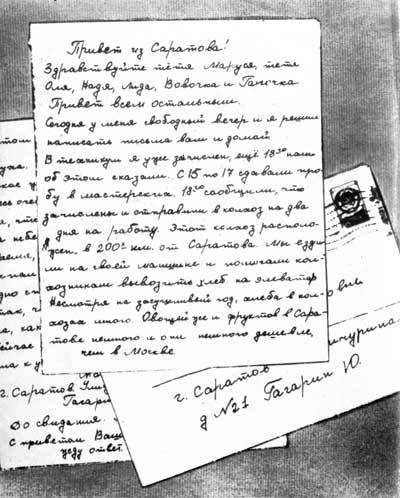 Привет из Саратова!
Здравствуйте тётя Маруся, тётя
Оля, Надя, Лида, Вовочка и Галочка
Привет всем остальным.
Сегодня у меня свободный вечер и я решил
написать письма вам и домой
В техникум я уже зачислен, ещё 18го нам
об этом сказали. С 15 по 17 сдавали про
бу в мастерских. 18го сообщили, что
зачислены и отправили в колхоз на два
дня на работу. Этот колхоз располо
жен в 200х км. от Саратова. Мы езди
ли на своей машине и помогали кол
хозникам вывозить хлеб на элеватор
Несмотря на засушливый год, хлеба в кол
хозах много. Овощей же и фруктов в Сара
тове немного и они немного дешевле,
чем в Москве
г. Саратов
До свидания.
С приветом Ваш
жду ответ.
г. Саратов
Мичурина
д №21 Гагарин Ю.